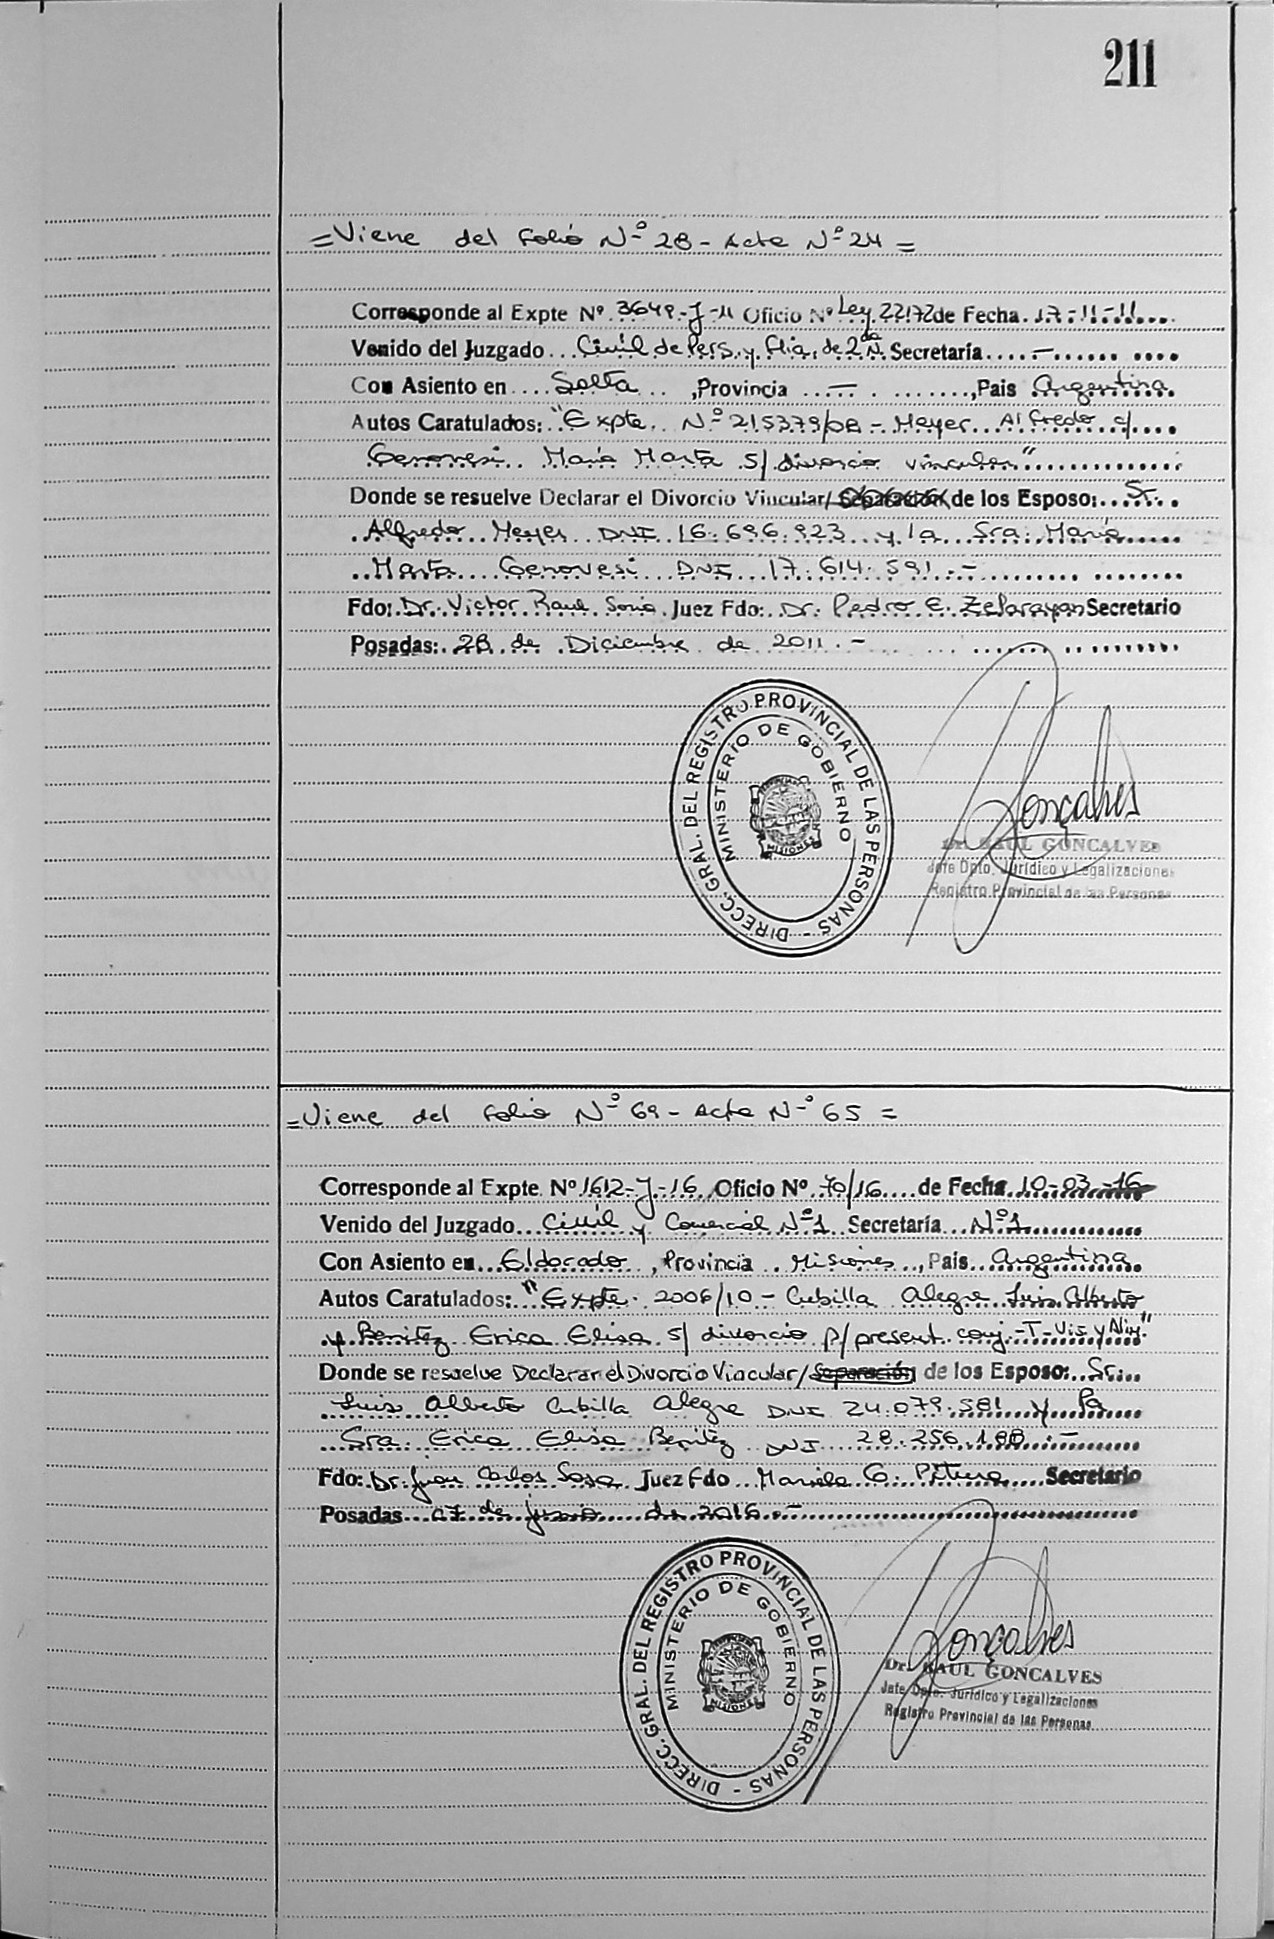 211
= Viene del Folio Nº 28 - Acta Nº 24 =
Corresponde al Expte Nº 3649-J-11 Oficio Nº Ley 22172 de Fecha 17-11-11
Venido del Juzgado Civil de Pers. y Flia. de 2da N. Secretaría -
Con Asiento en Salta, Provincia -, Pais Argentina
Autos Caratulados: "Expte. Nº 215379/08 - Meyer Alfredo c/
Genovesi María Marta s/ divorcio vincular"
Donde se resuelve Declarar el Divorcio Vincular/Separación de los Esposo: Sr.
Alfredo Meyer DNI 16.696.923 y la Sra: María
Marta Genovesi DNI 17.614.591.-
Fdo: Dr. Victor Raul Soria Juez Fdo: Dr. Pedro E. Zelarayan Secretario
Posadas: 28 de Diciembre de 2011.-
DIRECC. GRAL. DEL REGISTRO PROVINCIAL DE LAS PERSONAS -
MINISTERIO DE GOBIERNO
MISIONES
Gonçalves
Dr. RAUL GONCALVES
Jefe Dpto. Jurídico y Legalizaciones
Registro Provincial de las Personas
= Viene del Folio Nº 69 - Acta Nº 65 =
Corresponde al Expte. Nº 1612-J-16 Oficio Nº 70/16 de Fecha 10-03-16
Venido del Juzgado Civil y Comercial Nº 1 Secretaría Nº 1
Con Asiento en Eldorado, Provincia Misiones, Pais Argentina
Autos Caratulados: "Expte. 2006/10 - Cubilla Alegre Luis Alberto
y Benitez Erica Elisa s/ divorcio p/ present. conj. -T- Vis. y Alim."
Donde se resuelve Declarar el Divorcio Vincular/Separación de los Esposo: Sr.
Luis Alberto Cubilla Alegre DNI 24.079.581 y la
Sra. Erica Elisa Benitez DNI 28.256.188.-
Fdo: Dr. Juan Carlos Sosa Juez Fdo Mariela G. Pitura Secretario
Posadas 07 de junio de 2016.-
DIRECC. GRAL. DEL REGISTRO PROVINCIAL DE LAS PERSONAS -
MINISTERIO DE GOBIERNO
MISIONES
Gonçalves
Dr. RAUL GONCALVES
Jefe Dpto. Jurídico y Legalizaciones
Registro Provincial de las Personas